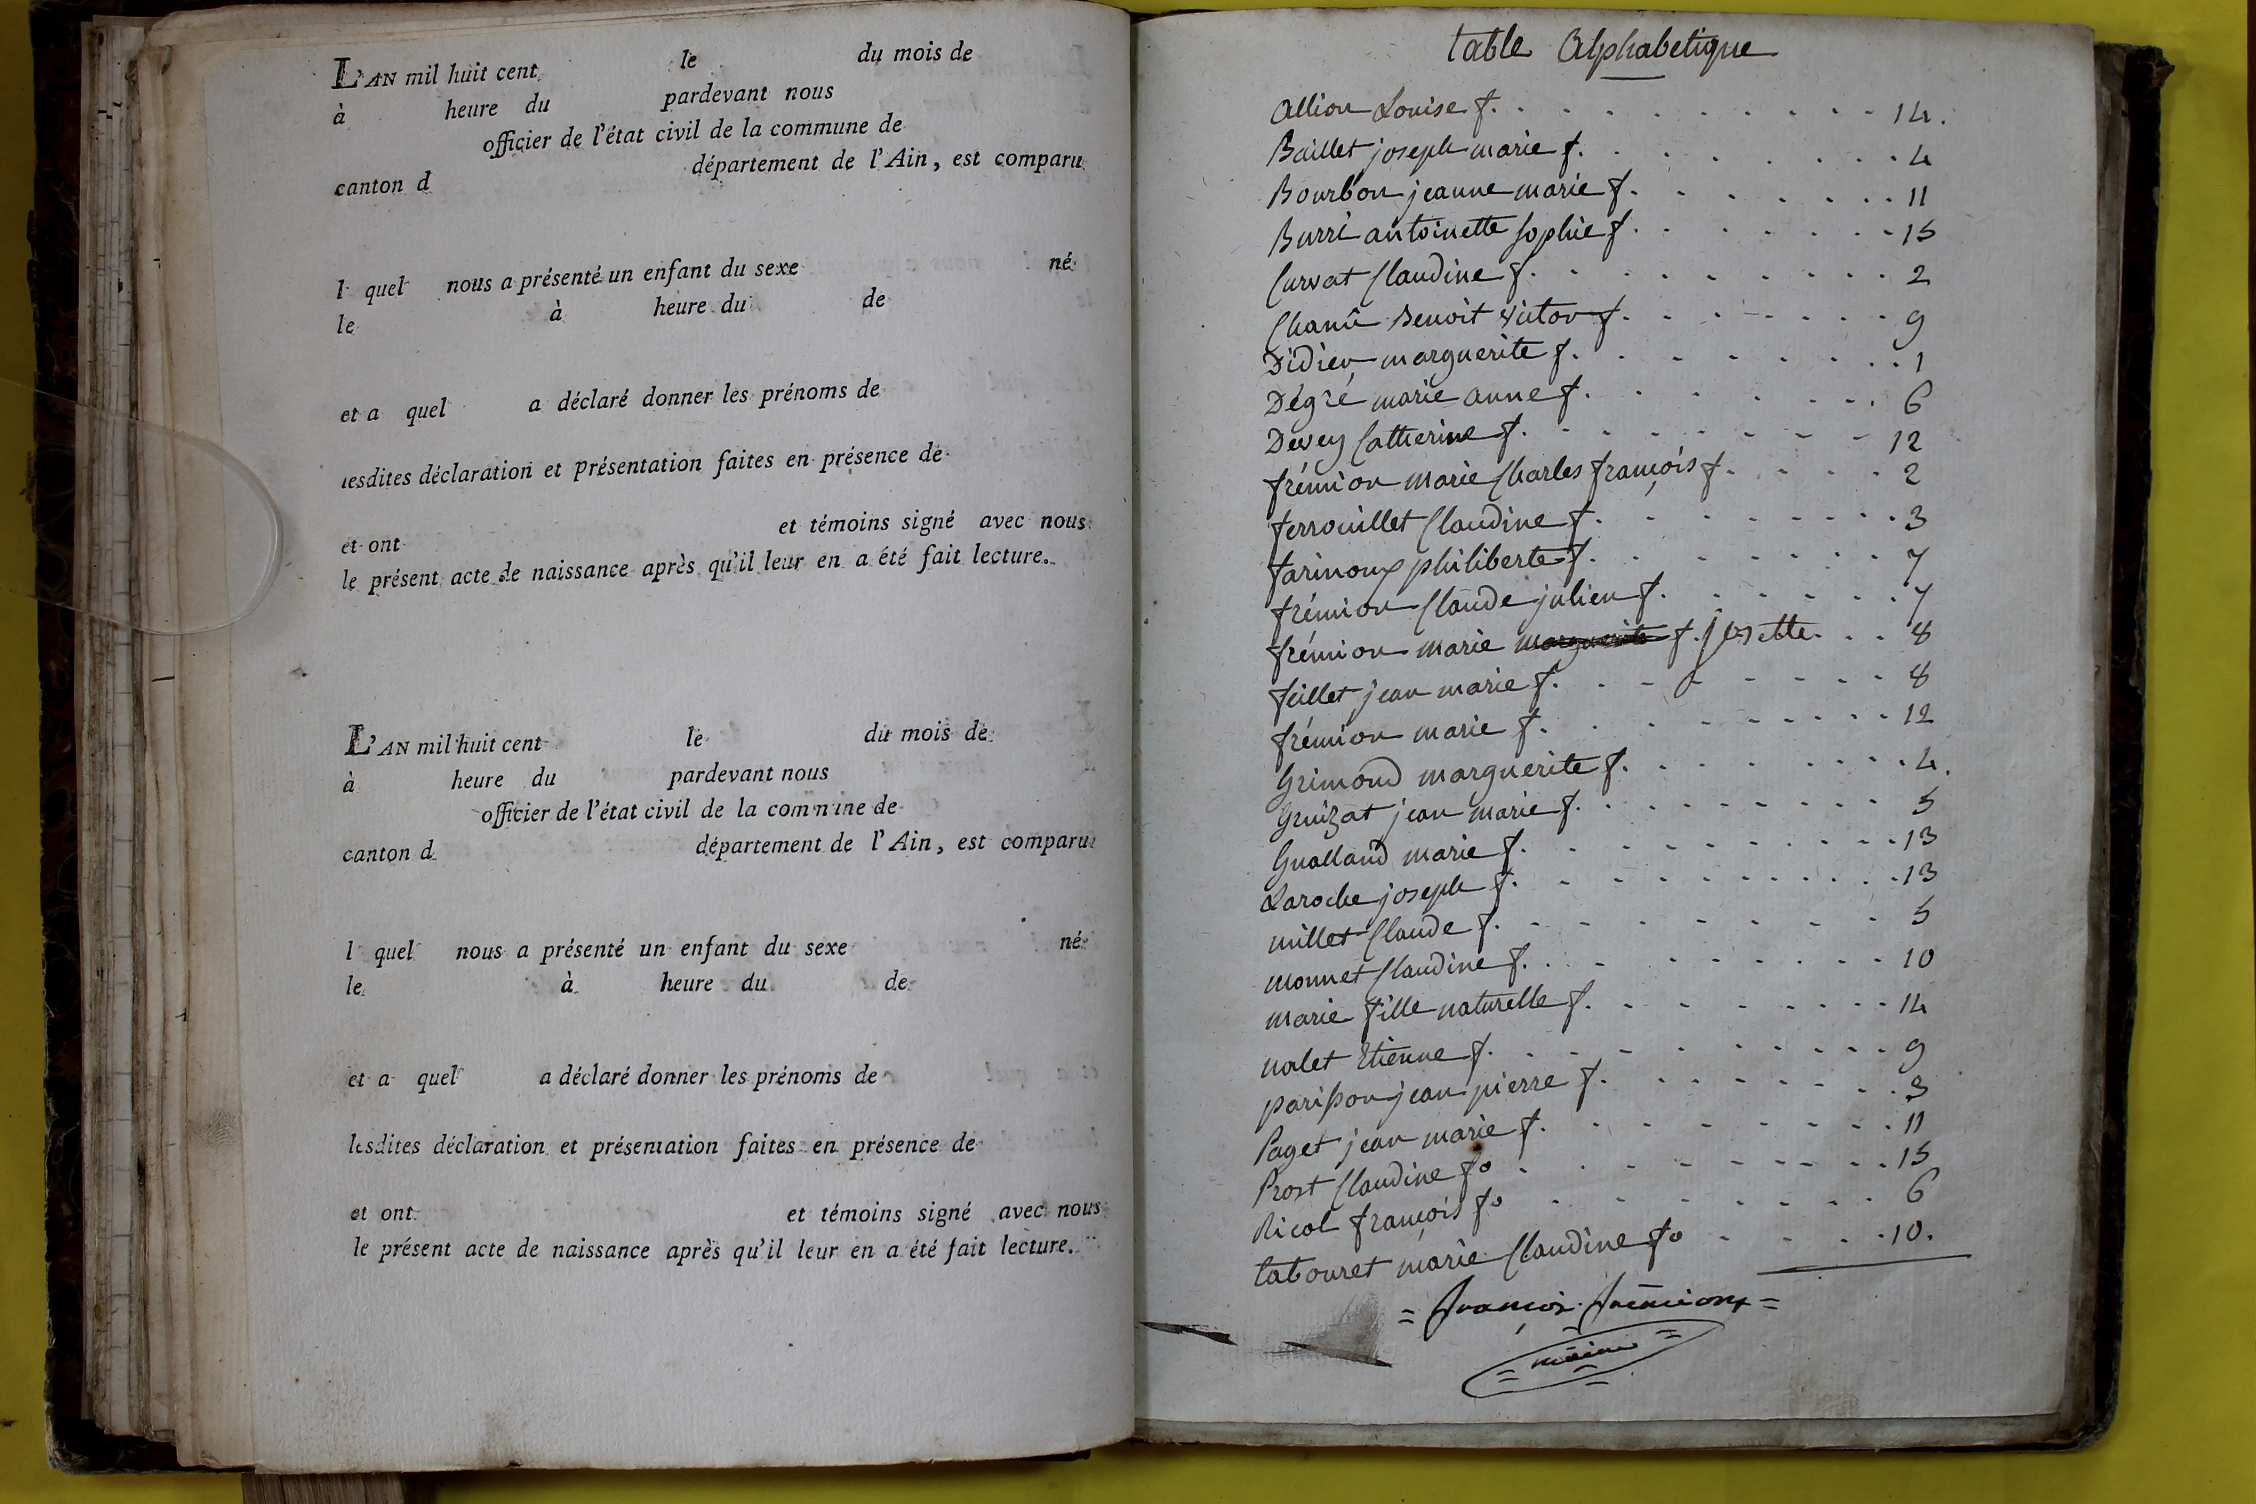 L'AN mil huit cent le du mois de
à heure du pardevant nous
officier de l'état civil de la commune de
canton d département de l'Ain, est comparu
l quel nous a présenté un enfant du sexe né
le à heure du de
et a quel a déclaré donner les prénoms de
lesdites déclaration et présentation faites en présence de
et ont et témoins signé avec nous
le présent acte de naissance après qu'il leur en a été fait lecture.
L'AN mil huit cent le du mois de
à heure du pardevant nous
officier de l'état civil de la commune de
canton d département de l'Ain, est comparu
l quel nous a présenté un enfant du sexe né
le à heure du de
et a quel a déclaré donner les prénoms de
lesdites déclaration et présentation faites en présence de
et ont et témoins signé avec nous
le présent acte de naissance après qu'il leur en a été fait lecture.
table Alphabetique
Allion Louise f. 14.
Baillet joseph marie f. 4
Bourbon jeanne marie f. 11
Burri antoinette sophie f. 15
Curvat Claudine f. 2
Chanû Benoit Victor f. 9
Didier marguerite f. 1
Dégré marie anne f. 6
Devey Catherine f. 12
frémion marie Charles françois f. 2
ferrouillet Claudine f. 3
farinoux philiberte f. 7
frémion Claude julien f. 7
frémion marie marguerite f. josette 8
feillet jean marie f. 8
frémion marie f. 12
Grimond marguerite f. 4.
Gruizat jean marie f. 5
Gualland marie f. 13
Laroche joseph f. 13
millet Claude f. 5
monnet Claudine f. 10
marie fille naturelle f. 14
nalet Etienne f. 9
parisson jean pierre f. 3
Paget jean marie f. 11
Prost Claudine fo 15
Ricol françois fo 6
tabouret marie Claudine fo 10.
= françois frémion =
maire